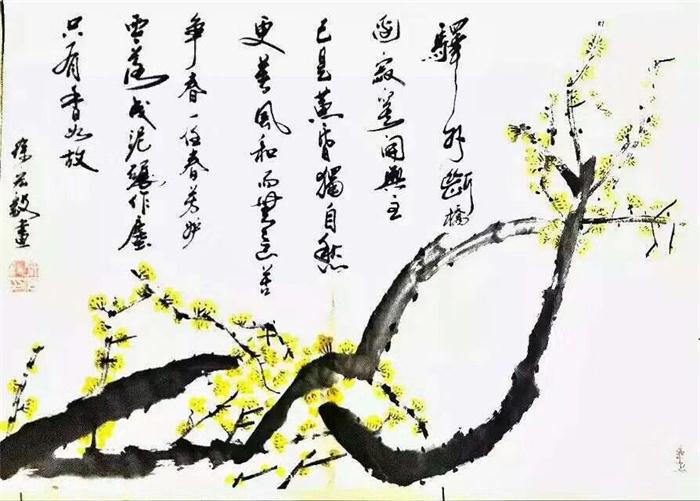 驛外斷橋
邊寂寞開無主
已是黃昏獨自愁
更著風和雨無意苦
爭春一任春芳妒
零落成泥碾作塵
只有香如故